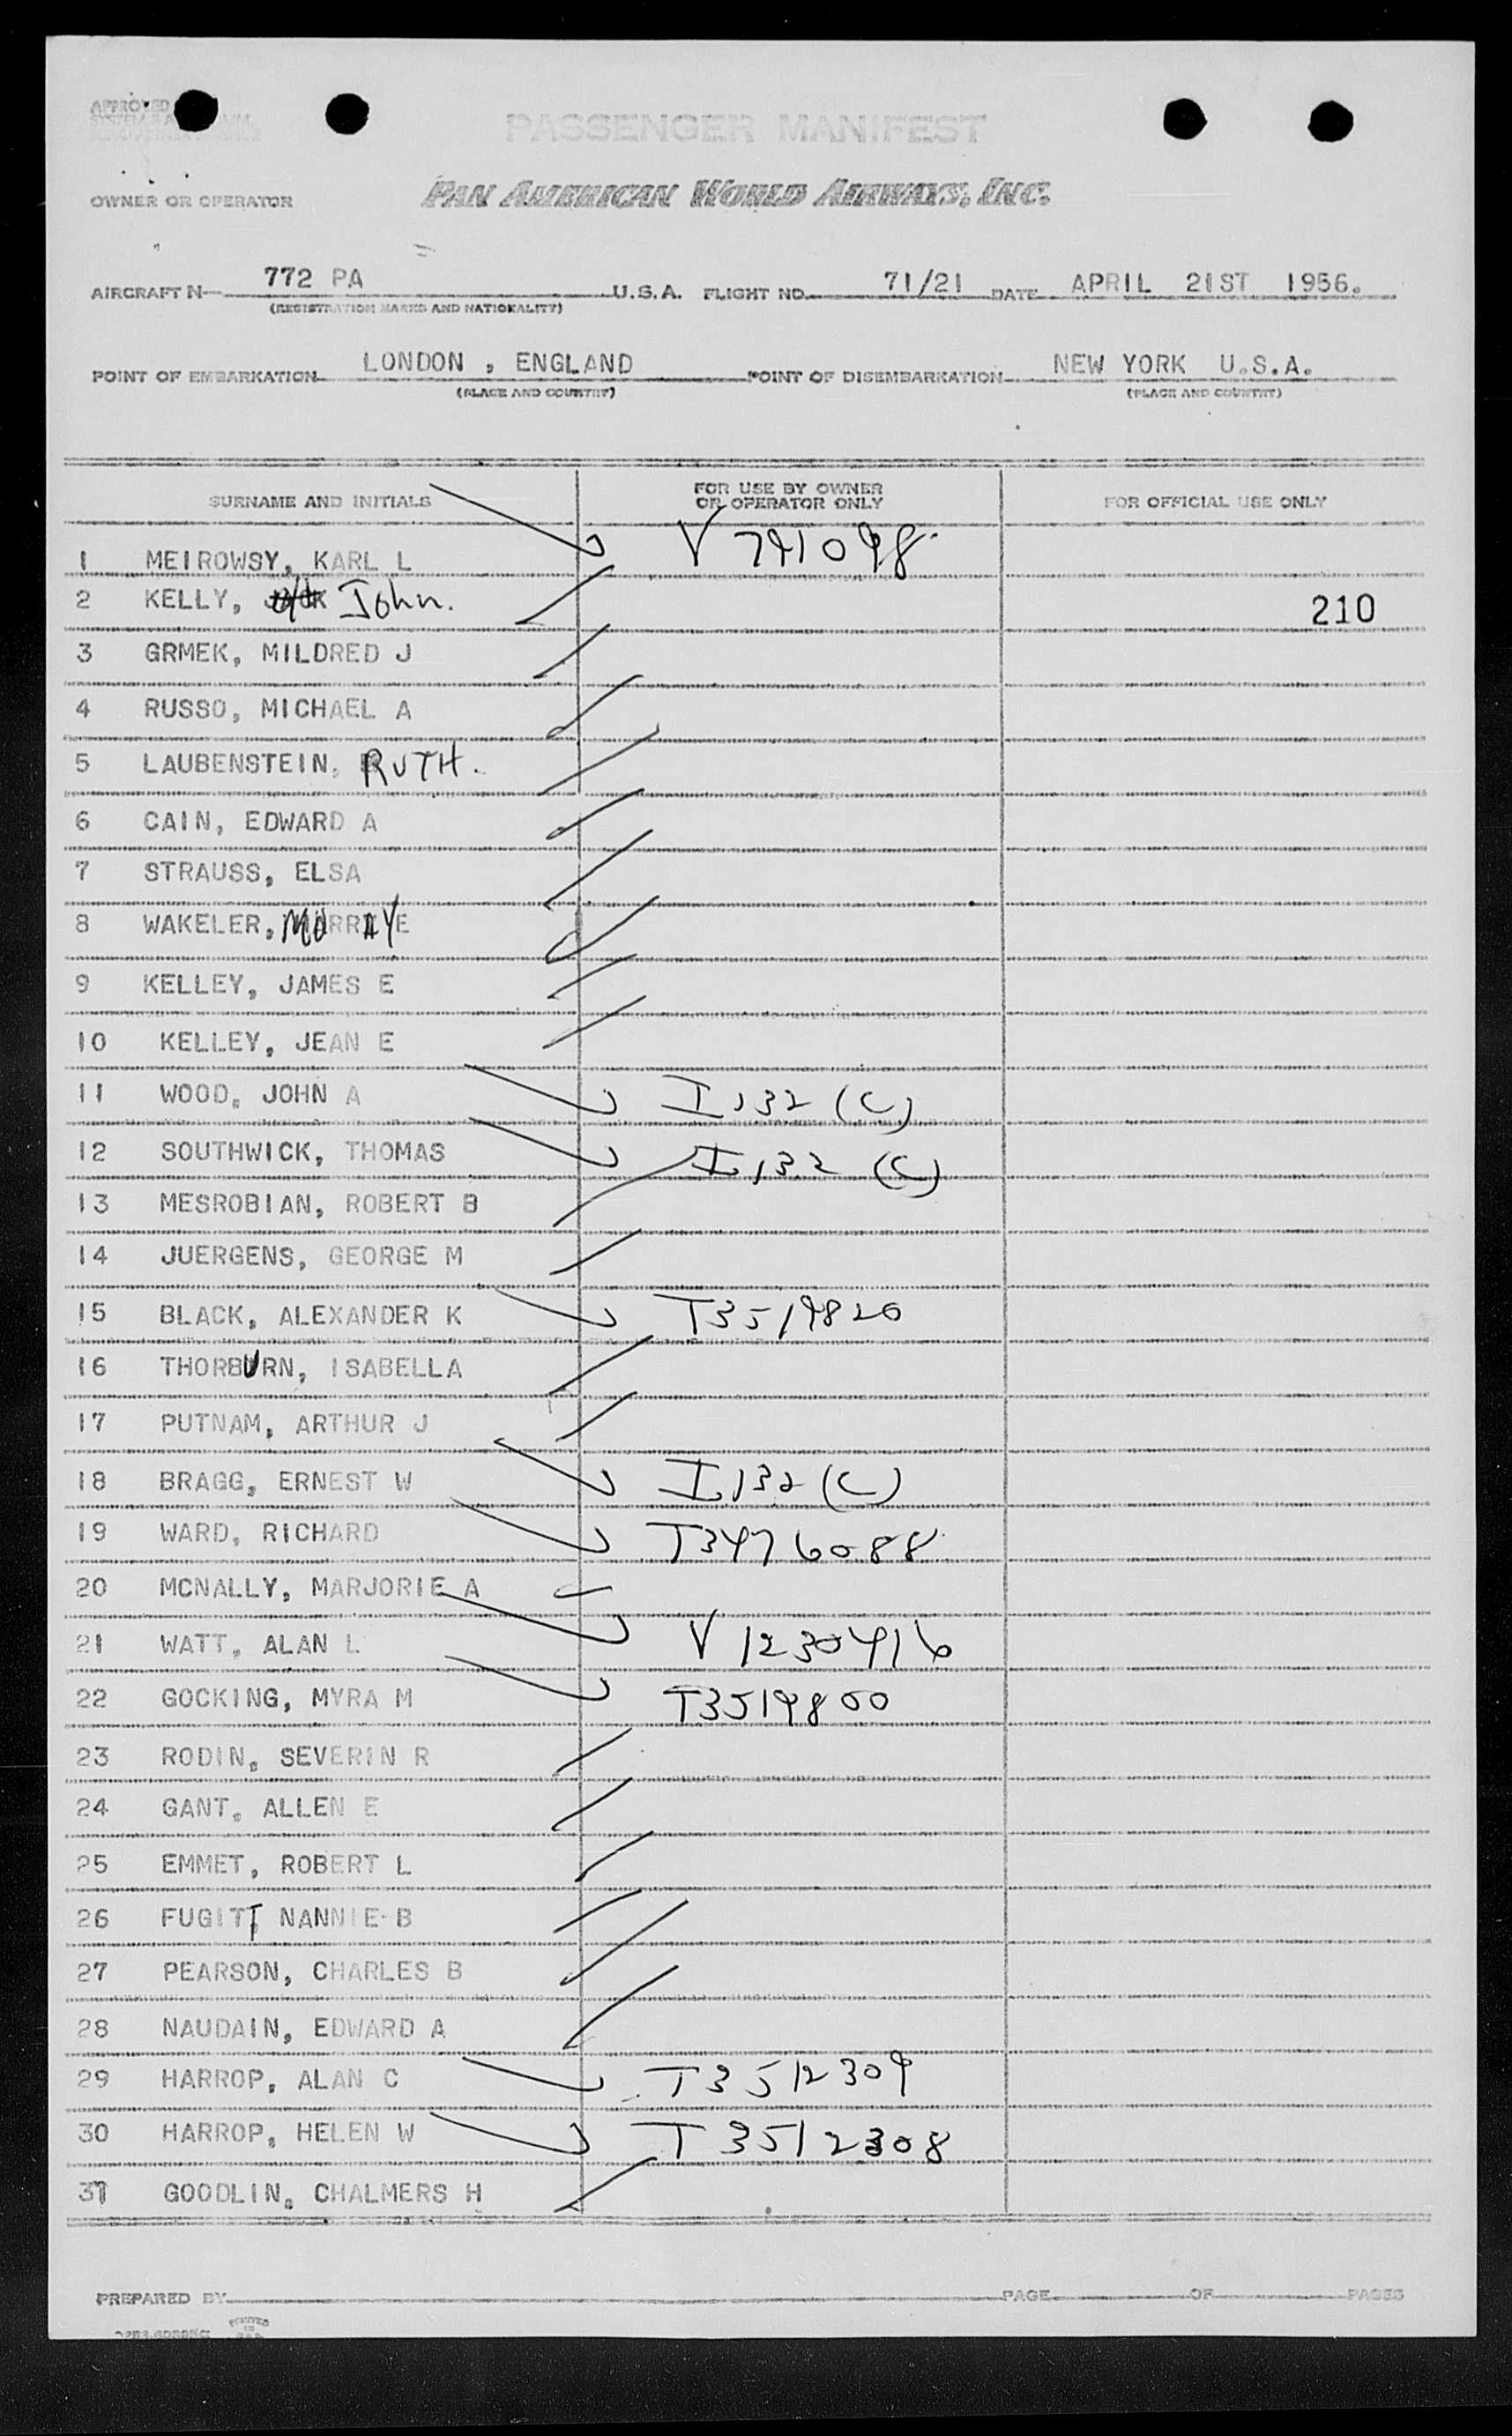 APPROVED
PASSENGER MANIFEST
OWNER OR OPERATOR PAN AMERICAN WORLD AIRWAYS, INC.
AIRCRAFT N 772 PA U.S.A. FLIGHT NO. 71/21 DATE APRIL 21ST 1956.
(REGISTRATION MARKS AND NATIONALITY)
POINT OF EMBARKATION LONDON , ENGLAND POINT OF DISEMBARKATION NEW YORK U.S.A.
(PLACE AND COUNTRY) (PLACE AND COUNTRY)
SURNAME AND INITIALS FOR USE BY OWNER OR OPERATOR ONLY FOR OFFICIAL USE ONLY
1 MEIROWSY, KARL L V 791098
2 KELLY, John. 210
3 GRMEK, MILDRED J
4 RUSSO, MICHAEL A
5 LAUBENSTEIN, RUTH.
6 CAIN, EDWARD A
7 STRAUSS, ELSA
8 WAKELER, MURRAY E
9 KELLEY, JAMES E
10 KELLEY, JEAN E
11 WOOD, JOHN A I 132 (C)
12 SOUTHWICK, THOMAS I 132 (C)
13 MESROBIAN, ROBERT B
14 JUERGENS, GEORGE M
15 BLACK, ALEXANDER K T3519820
16 THORBURN, ISABELLA
17 PUTNAM, ARTHUR J
18 BRAGG, ERNEST W I 132 (C)
19 WARD, RICHARD T3476088
20 MCNALLY, MARJORIE A
21 WATT, ALAN L V 1230416
22 GOCKING, MYRA M T3519800
23 RODIN, SEVERIN R
24 GANT, ALLEN E
25 EMMET, ROBERT L
26 FUGITT NANNIE B
27 PEARSON, CHARLES B
28 NAUDAIN, EDWARD A
29 HARROP, ALAN C T3512309
30 HARROP, HELEN W T3512308
31 GOODLIN, CHALMERS H
PREPARED BY PAGE OF PAGES
PRINTED IN